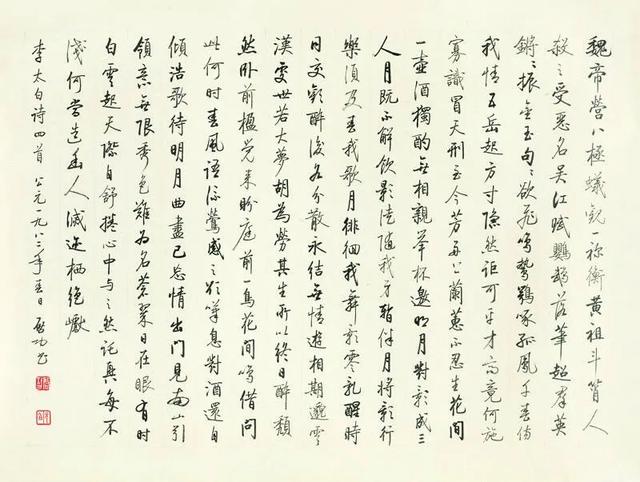 魏帝營八極蟻觀一禰衡黃祖斗筲人
殺之受惡名吳江賦鸚鵡落筆超群英
鏘々振金玉句々欲飛鳴鷙鶚啄孤鳳千春傷
我情五岳起方寸隱然詎可平才高竟何施
寡識冒天刑至今芳洲上蘭蕙不忍生花間
一壺酒獨酌無相親舉杯邀明月對影成三
人月既不解飲影徒隨我身暫伴月將影行
樂須及春我歌月徘徊我舞影零亂醒時
同交歡醉後各分散永結無情遊相期邈雲
漢處世若大夢胡為勞其生所以終日醉頹
然卧前楹覺來盼庭前一鳥花間鳴借問
此何時春風語流鶯感之欲嘆息對酒還自
傾浩歌待明月曲盡已忘情出門見南山引
領意無限秀色難為名蒼翠日在眼有時
白雲起天際自舒捲心中與之然託興每不
淺何當造幽人滅迹栖絕巘
李太白诗四首 公元一九八三年春日 啟功书